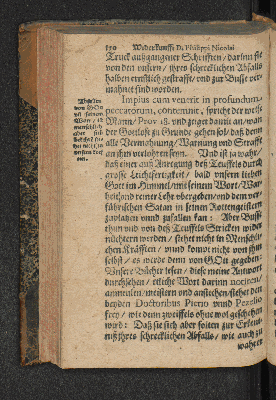 150 Widerkunfft D. Philippi Nicolai
Truck außgangener Schrifften / darinn sie
von den unsern / ihres schrecklichen Abfalls
halben ernstlich gestrafft / und zur Busse ver-
mahnet sind worden.
Impius cum venerit in profundum
peccatorum, contemnit, spricht der weise
Mann / Prov. 18. und zeiget damit an / wan
der Gottlose zu Grunde gehen sol / daß denn
alle Vermahnung / Warnung und Straffe
an ihm verlohren seyn. Und ist ja wahr /
daß einer auß Anregung deß Teuffels durch
grosse Leichtfertigkeit / bald unsern lieben
Gott im Himmel / mit seinem Wort / War-
heit und reiner Lehr ubergeben / und dem ver-
führischen Satan in seinen Rottengeistern
zuvlauffen unnd zufallen kan: Aber Busse
thun und von deß Teuffels Stricken wider
nüchtern werden / stehet nicht in Menschli-
chen Kräfften / unnd kompt nicht von ihm
selbst / es werde denn von GOtt gegeben.
Unsere Bücher lesen / diese meine Antwort
durchsehen / etliche Wort darinn notiren /
anmealen / meistern und anstechen / stehet den
beyden Doctoribus Pierio unnd Pezelio
frey / wie denn zweiffels ohne wol geschehen
wird: Daß sie sich aber solten zur Erkent-
niß ihres schrecklichen Abfalls / wie auch zu
wahrer
Abfallen
von GOtt
und seinem
Wort / ist
menschlich /
aber sich
bekehren / ste-
het nicht in
unsern kreff-
ten.